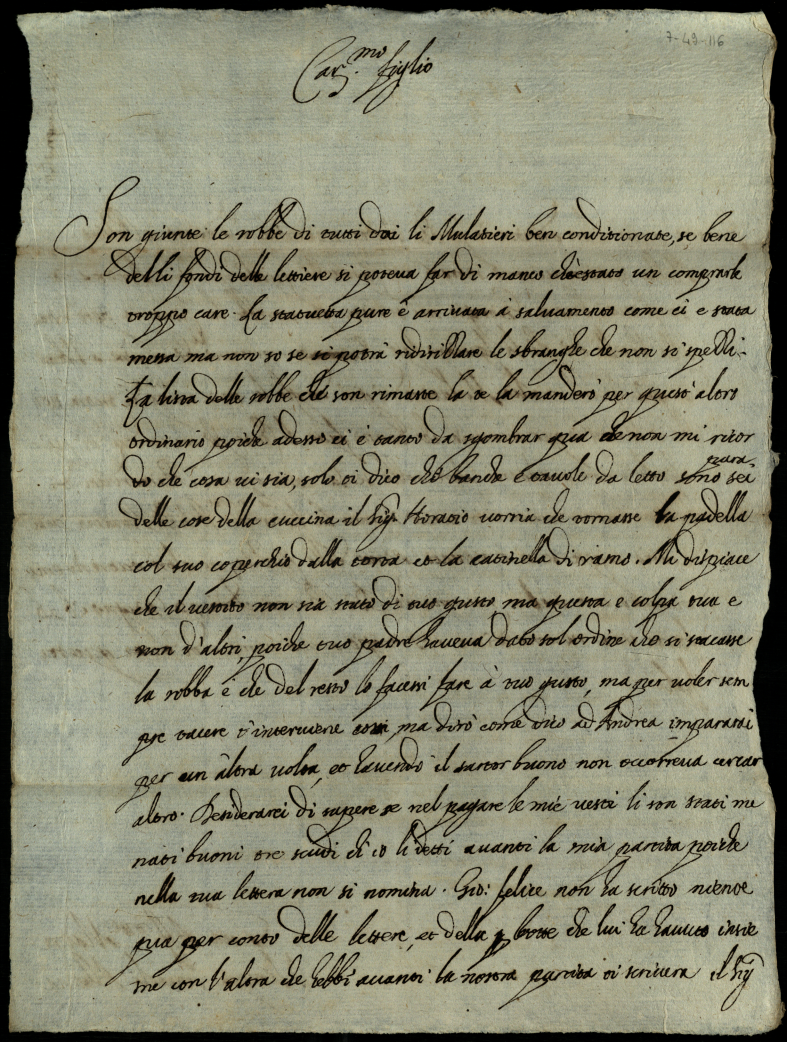 7-49-116
Car.mo figlio
Son giunte le robbe di tutti doi li Mulatieri ben conditionate, se bene
delli fondi delle lettiere si poteva far di manco ch'è stato un comprarle
troppo care. La statuetta pure è arrivata à salvamento come ci e stata
messa ma non so se si potrà le sbranghe che non si spelli.
La lista delle robbe che son rimaste la te la manderò per quest'altro
ordinario poiche adesso ci è tanto da sgombrar qua che non mi ricor
do che cosa vi sia, solo ti dico che banche e tavole da letto sono sei
para
delle cose della cuccina il Sig Horatio vorria che tornasse la padella
col suo coperchio dalla torta et la catinella di ramo. Mi dispiace
che il vestito non sia stato di tuo gusto ma questa e colpa tua e
non d'altri, poiche tuo padre haveva dato sol ordine che si stacasse
la robba e che del resto lo facessi fare à tuo gusto, ma per voler sem
pre tacere t'interviene cosi, ma dirò come dico ad Andrea impararai
per un altra volta, et havendo il sartor buono non occorreva cercar
altro. Desiderarei di sapere se nel pagare le mie vesti li son stati me
nati buoni tre scudi ch'io li detti avanti la mia partita poiche
nella tua lettera non si nomina. Gio: felice non ha scritto niente
qua per conto delle lettere, et della botte che lui ha havuto insie
me con l'altra che hebbi avanti la nostra partita ti scriverà il Sig